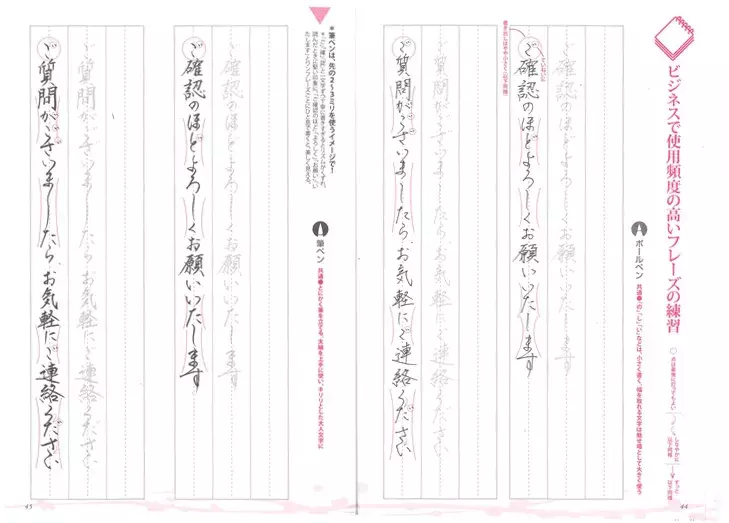 ビジネスで使用頻度の高いフレーズの練習
ボールペン
ご確認のほどよろしくお願いいたします
ご確認のほどよろしくお願いいたします
ご質問がございましたら、お気軽にご連絡ください
ご質問がございましたら、お気軽にご連絡ください
44
＊筆ペンは、先の2〜3ミリを使うイメージで！
筆ペン
共通●とにかく筆を立てる。夫婦を上手に使い、キリリとした大人文字に
ご確認のほどよろしくお願いいたします
ご確認のほどよろしくお願いいたします
ご質問がございましたら、お気軽にご連絡ください
ご質問がございましたら、お気軽にご連絡ください
45